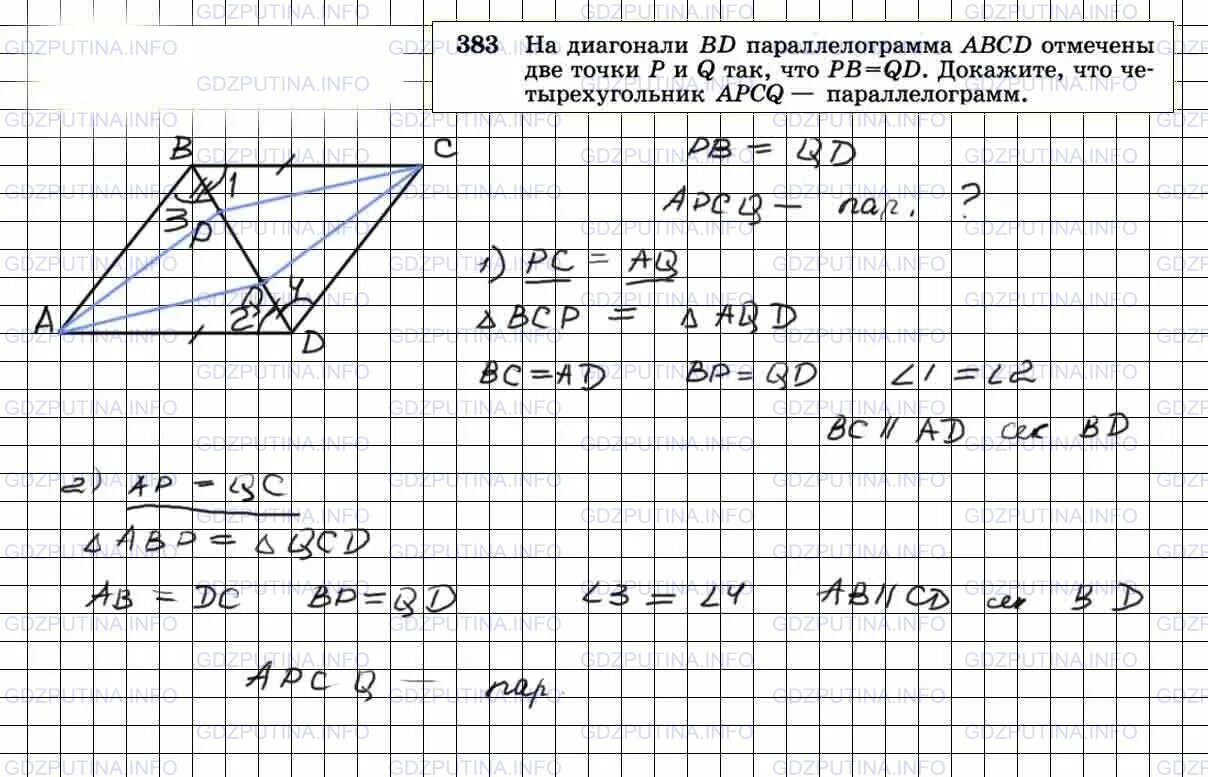 383 На диагонали BD параллелограмма ABCD отмечены
две точки P и Q так, что PB=QD. Докажите, что че-
тырехугольник APCQ — параллелограмм.
B
C
1
3
P
Q
4
A
2
D
PB = QD
APCQ — пар. ?
1) PC = AQ
△ BCP = △ AQD
BC = AD BP = QD ∠1 = ∠2
BC ∥ AD сек BD
2) AP = QC
△ ABP = △ QCD
AB = DC BP = QD ∠3 = ∠4 AB ∥ CD сек BD
APCQ — пар.
GDZPUTINA.INFO